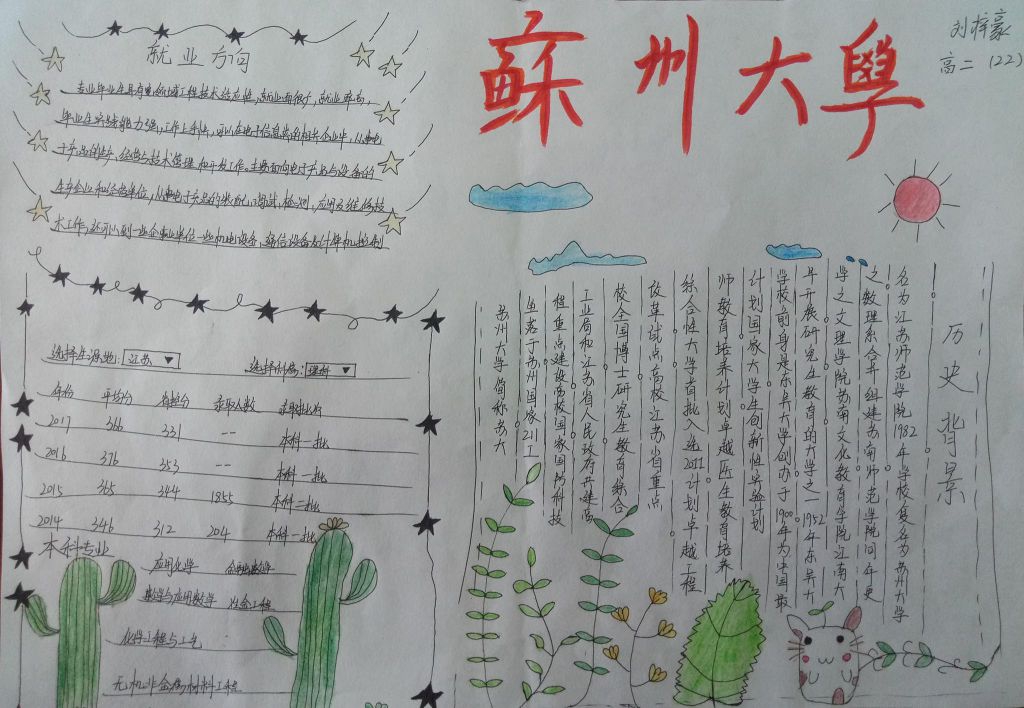 蘇州大學
刘梓豪
高二（22）
就业方向
专业毕业生具有电领域工程技术适应性，就业面很广，就业率高，
毕业生实践能力强，工作上手快，可以在电子信息类的相关企业中，从事电
子产品的生产，经营与技术管理和开发工作。主要面向电子产品与设备的
生产企业和经营单位，从事电子产品的装配，调试，检测，应用及维修技
术工作，还可以到一些企事业单位一些机电设备，通信设备及计算机控制
选择生源地: 江苏 ▼
选择科类: 理科 ▼
年份 平均分 省控分 录取人数 录取批次
2017 366 331 -- 本科一批
2016 376 353 -- 本科一批
2015 365 344 1855 本科二批
2014 346 312 204 本科一批
本科专业
应用化学 金融数学
数学与应用数学 冶金工程
化学工程与工艺
无机非金属材料工程
历史背景
苏州大学简称苏大
坐落于苏州国家211工
程重点建设高校国家国防科技
工业局和江苏省人民政府共建高
校全国博士研究生教育综合
改革试点高校江苏省重点
综合性大学首批入选2011计划卓越工程
师教育培养计划卓越医生教育培养
计划国家大学生创新性实验计划
学校前身是东吴大学创办于1900年为中国最
早开展研究生教育的大学之一1952年东吴大
学之文理学院苏南文化教育学院江南大
之数理系合并组建苏南师范学院同年更
名为江苏师范学院1982年学校复名为苏州大学